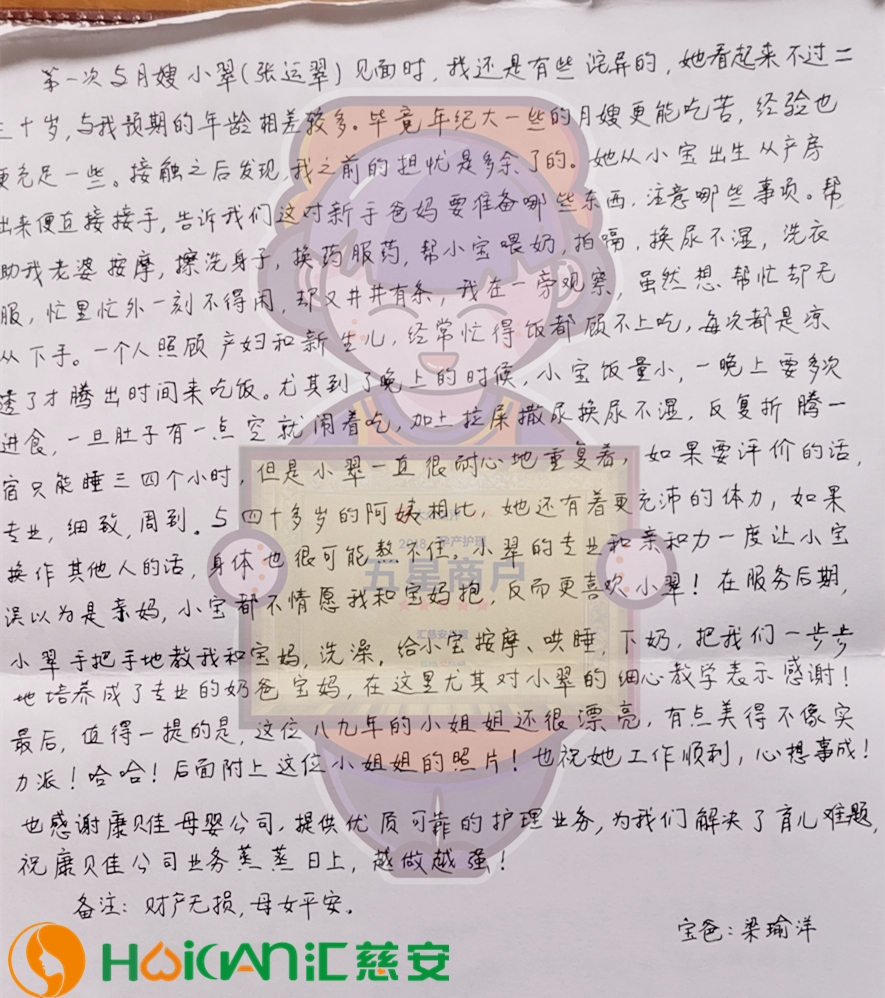 第一次与月嫂小翠(张运翠)见面时,我还是有些诧异的,她看起来不过二
三十岁,与我预期的年龄相差较多。毕竟年纪大一些的月嫂更能吃苦,经验也
更充足一些。接触之后发现,我之前的担忧是多余了的。她从小宝出生从产房
出来便直接接手,告诉我们这对新手爸妈要准备哪些东西,注意哪些事项。帮
助我老婆按摩,擦洗身子,换药服药,帮小宝喂奶,拍嗝,换尿不湿,洗衣
服,忙里忙外一刻不得闲,却又井井有条,我在一旁观察,虽然想帮忙却无
从下手。一个人照顾产妇和新生儿,经常忙得饭都顾不上吃,每次都是凉
透了才腾出时间来吃饭。尤其到了晚上的时候,小宝饭量小,一晚上要多次
进食,一旦肚子有一点空就闹着吃,加上拉屎撒尿换尿不湿,反复折腾一
宿只能睡三四个小时,但是小翠一直很耐心地重复着,如果要评价的话,
专业,细致,周到。与四十多岁的阿姨相比,她还有着更充沛的体力,如果
换作其他人的话,身体也很可能熬不住。小翠的专业和亲和力一度让小宝
误以为是亲妈,小宝都不情愿我和宝妈抱,反而更喜欢小翠!在服务后期,
小翠手把手地教我和宝妈,洗澡,给小宝按摩、哄睡,下奶,把我们一步步
地培养成了专业的奶爸宝妈,在这里尤其对小翠的细心教学表示感谢!
最后,值得一提的是,这位八九年的小姐姐还很漂亮,有点美得不像实
力派!哈哈!后面附上这位小姐姐的照片!也祝她工作顺利,心想事成!
也感谢康贝佳母婴公司,提供优质可靠的护理业务,为我们解决了育儿难题,
祝康贝佳公司业务蒸蒸日上,越做越强!
备注:财产无损,母女平安。
宝爸:梁瑜洋
2018
孕产护理
五星商户
HAIKIAN汇慈安